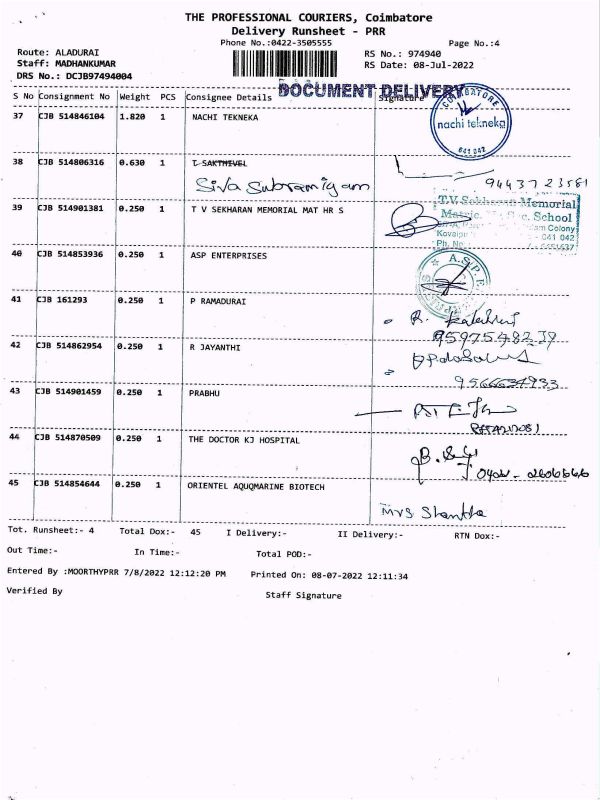 THE PROFESSIONAL COURIERS, Coimbatore
Delivery Runsheet - PRR
Phone No.:0422-3505555 Page No.:4
Route: ALADURAI RS No.: 974940
Staff: MADHANKUMAR RS Date: 08-Jul-2022
DRS No.: DCJB97494004
DOCUMENT DELIVERY
S No Consignment No Weight PCS Consignee Details Signature
COIMBATORE
37 CJB 514846104 1.820 1 NACHI TEKNEKA
nachi tekneka
641 042
38 CJB 514806316 0.630 1 T SAKTHIVEL
Siva Subramiyam
94437 23581
39 CJB 514901381 0.250 1 T V SEKHARAN MEMORIAL MAT HR S
T.V. Sekharan Memorial
Matric. Sec. School
Colony
- 041 042
Ph. No
40 CJB 514853936 0.250 1 ASP ENTERPRISES
41 CJB 161293 0.250 1 P RAMADURAI
R.
42 CJB 514862954 0.250 1 R JAYANTHI
9566634933
43 CJB 514901459 0.250 1 PRABHU
44 CJB 514870509 0.250 1 THE DOCTOR KJ HOSPITAL
45 CJB 514854644 0.250 1 ORIENTEL AQUQMARINE BIOTECH
Mrs Shantha
Tot. Runsheet:- 4 Total Dox:- 45 I Delivery:- II Delivery:- RTN Dox:-
Out Time:- In Time:- Total POD:-
Entered By :MOORTHYPRR 7/8/2022 12:12:20 PM Printed On: 08-07-2022 12:11:34
Verified By Staff Signature